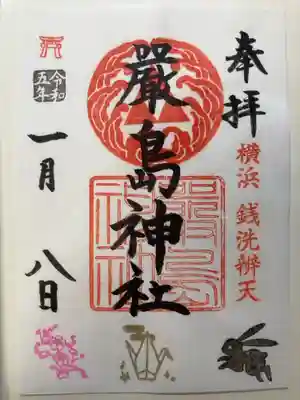 奉拝
横浜 銭洗辨天
嚴島神社
令和
五年
一月 八日